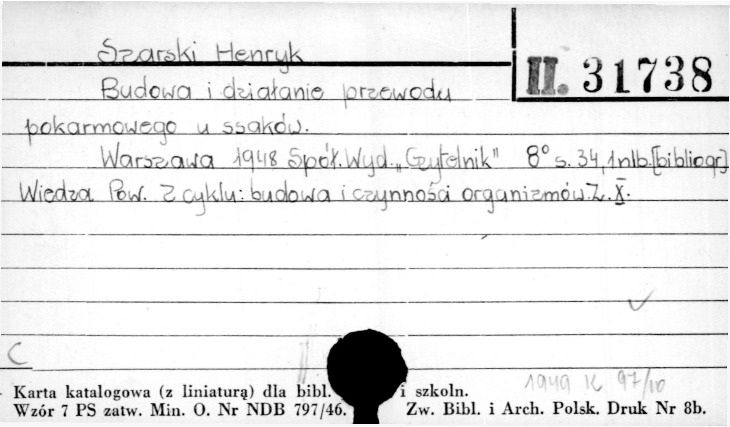 Szarski Henryk
II. 31738
Budowa i działanie przewodu
pokarmowego u ssaków.
Warszawa 1948 Spół. Wyd. „Czytelnik" 8° s. 34, 1 nlb. [bibliogr.]
Wiedza Pow. Z cyklu: budowa i czynności organizmów. Z. X.
C
1949 K 97/10
Karta katalogowa (z liniaturą) dla bibl. i szkoln.
Wzór 7 PS zatw. Min. O. Nr NDB 797/46. Zw. Bibl. i Arch. Polsk. Druk Nr 8b.